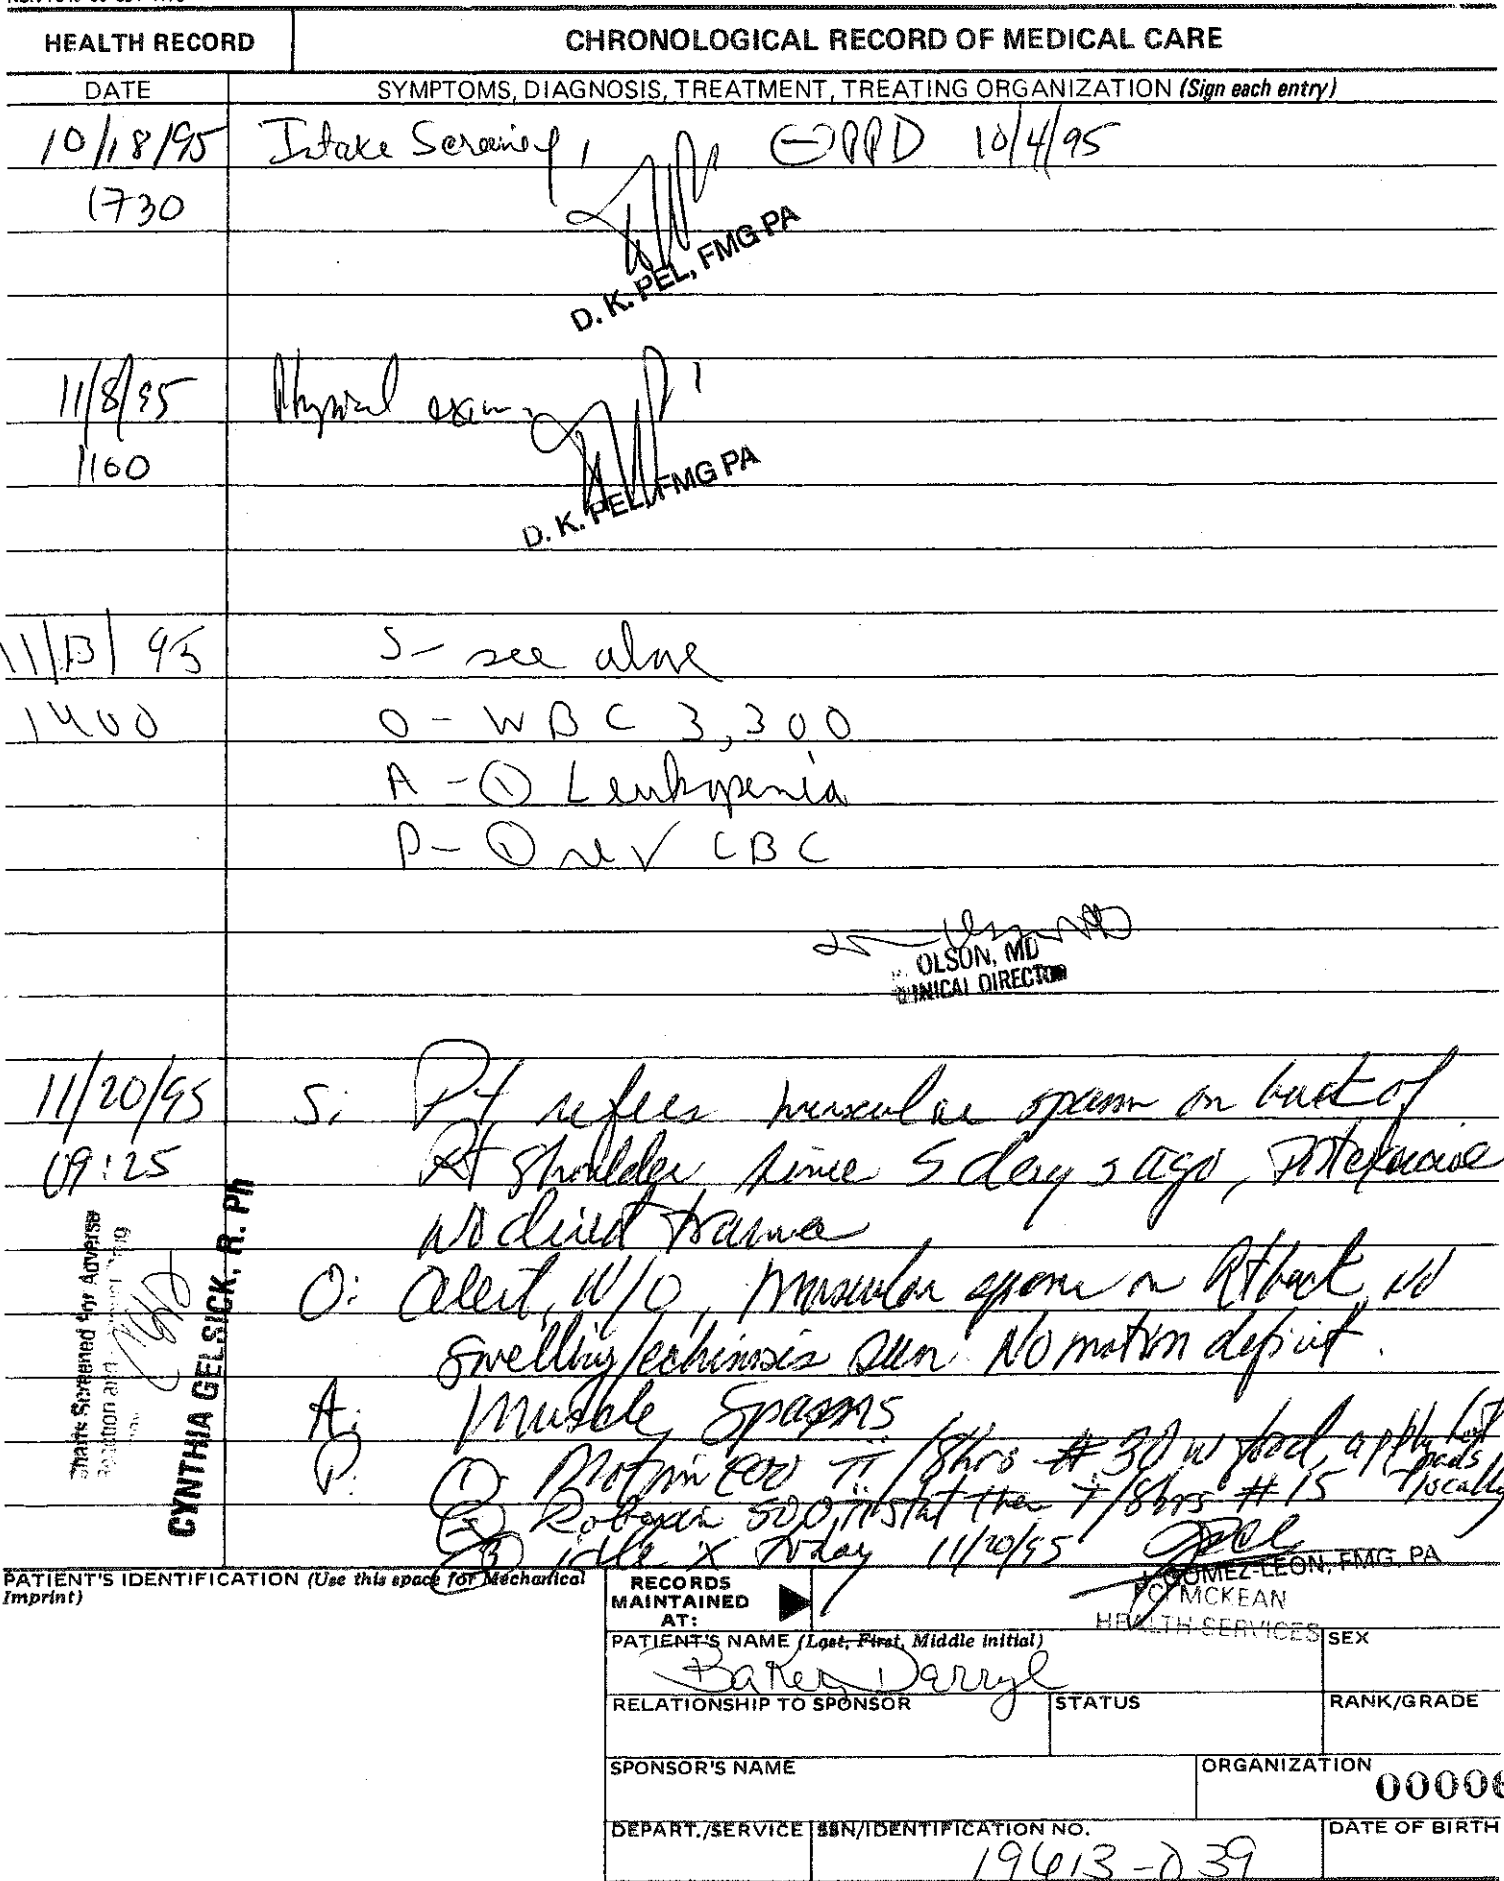 HEALTH RECORD
CHRONOLOGICAL RECORD OF MEDICAL CARE
DATE
SYMPTOMS, DIAGNOSIS, TREATMENT, TREATING ORGANIZATION (Sign each entry)
10/18/95 Intake Screening, ⊖PPD 10/4/95
1730
D. K. PEL, FMG PA
11/8/95 Physical exam.
1100
D. K. PEL, FMG PA
11/13/95 S- see above
1400 O- WBC 3,300
A-① Leukopenia
P-① re √ CBC
OLSON, MD
CLINICAL DIRECTOR
11/20/95 S: Pt refers muscular spasm on back of
09:25 Rt shoulder since 5 days ago, Postexercise
no direct trauma
O: Alert, W/O, Muscular spasm on Rt back, no
swelling/echimosis seen. No motion deficit.
A: Muscle Spasms
P: ① Motrin TT/8hrs #30 w food, apply hot pads locally
② Robaxin 500, TT stat then T/8hrs #15
③ idle x today 11/20/95
Charts Screened for Adverse
CYNTHIA GELSICK, R. Ph
GOMEZ-LEON, FMG, PA
FCI MCKEAN
HEALTH SERVICES
PATIENT'S IDENTIFICATION (Use this space for Mechanical
Imprint)
RECORDS
MAINTAINED
AT:
PATIENT'S NAME (Last, First, Middle initial)
Baker, Darryl
SEX
RELATIONSHIP TO SPONSOR
STATUS
RANK/GRADE
SPONSOR'S NAME
ORGANIZATION
0000
DEPART./SERVICE
SSN/IDENTIFICATION NO.
19613-039
DATE OF BIRTH